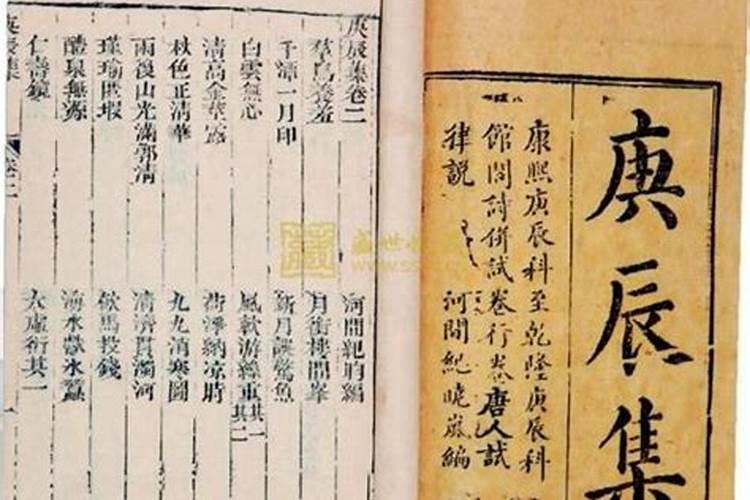 庚辰集
康熙庚辰科至乾隆庚辰科
館閣詩併試卷行卷唐人試
律說 河間紀曉嵐編
庚辰集卷二 河間紀昀編
羣鳥養羞 月銜樓間峯
千潭一月印 新月誤驚魚
白雲無心 風軟游絲重其一其二
清高金莖露 荷淨納凉時
秋色正清華 九九消寒圖
雨後山光滿郭清 清濟貫濁河
瑾瑜匿瑕 飲馬投錢
醴泉無源 水獻氷蠶
仁壽鏡 大虛衍其一
庚辰集 卷二
藏